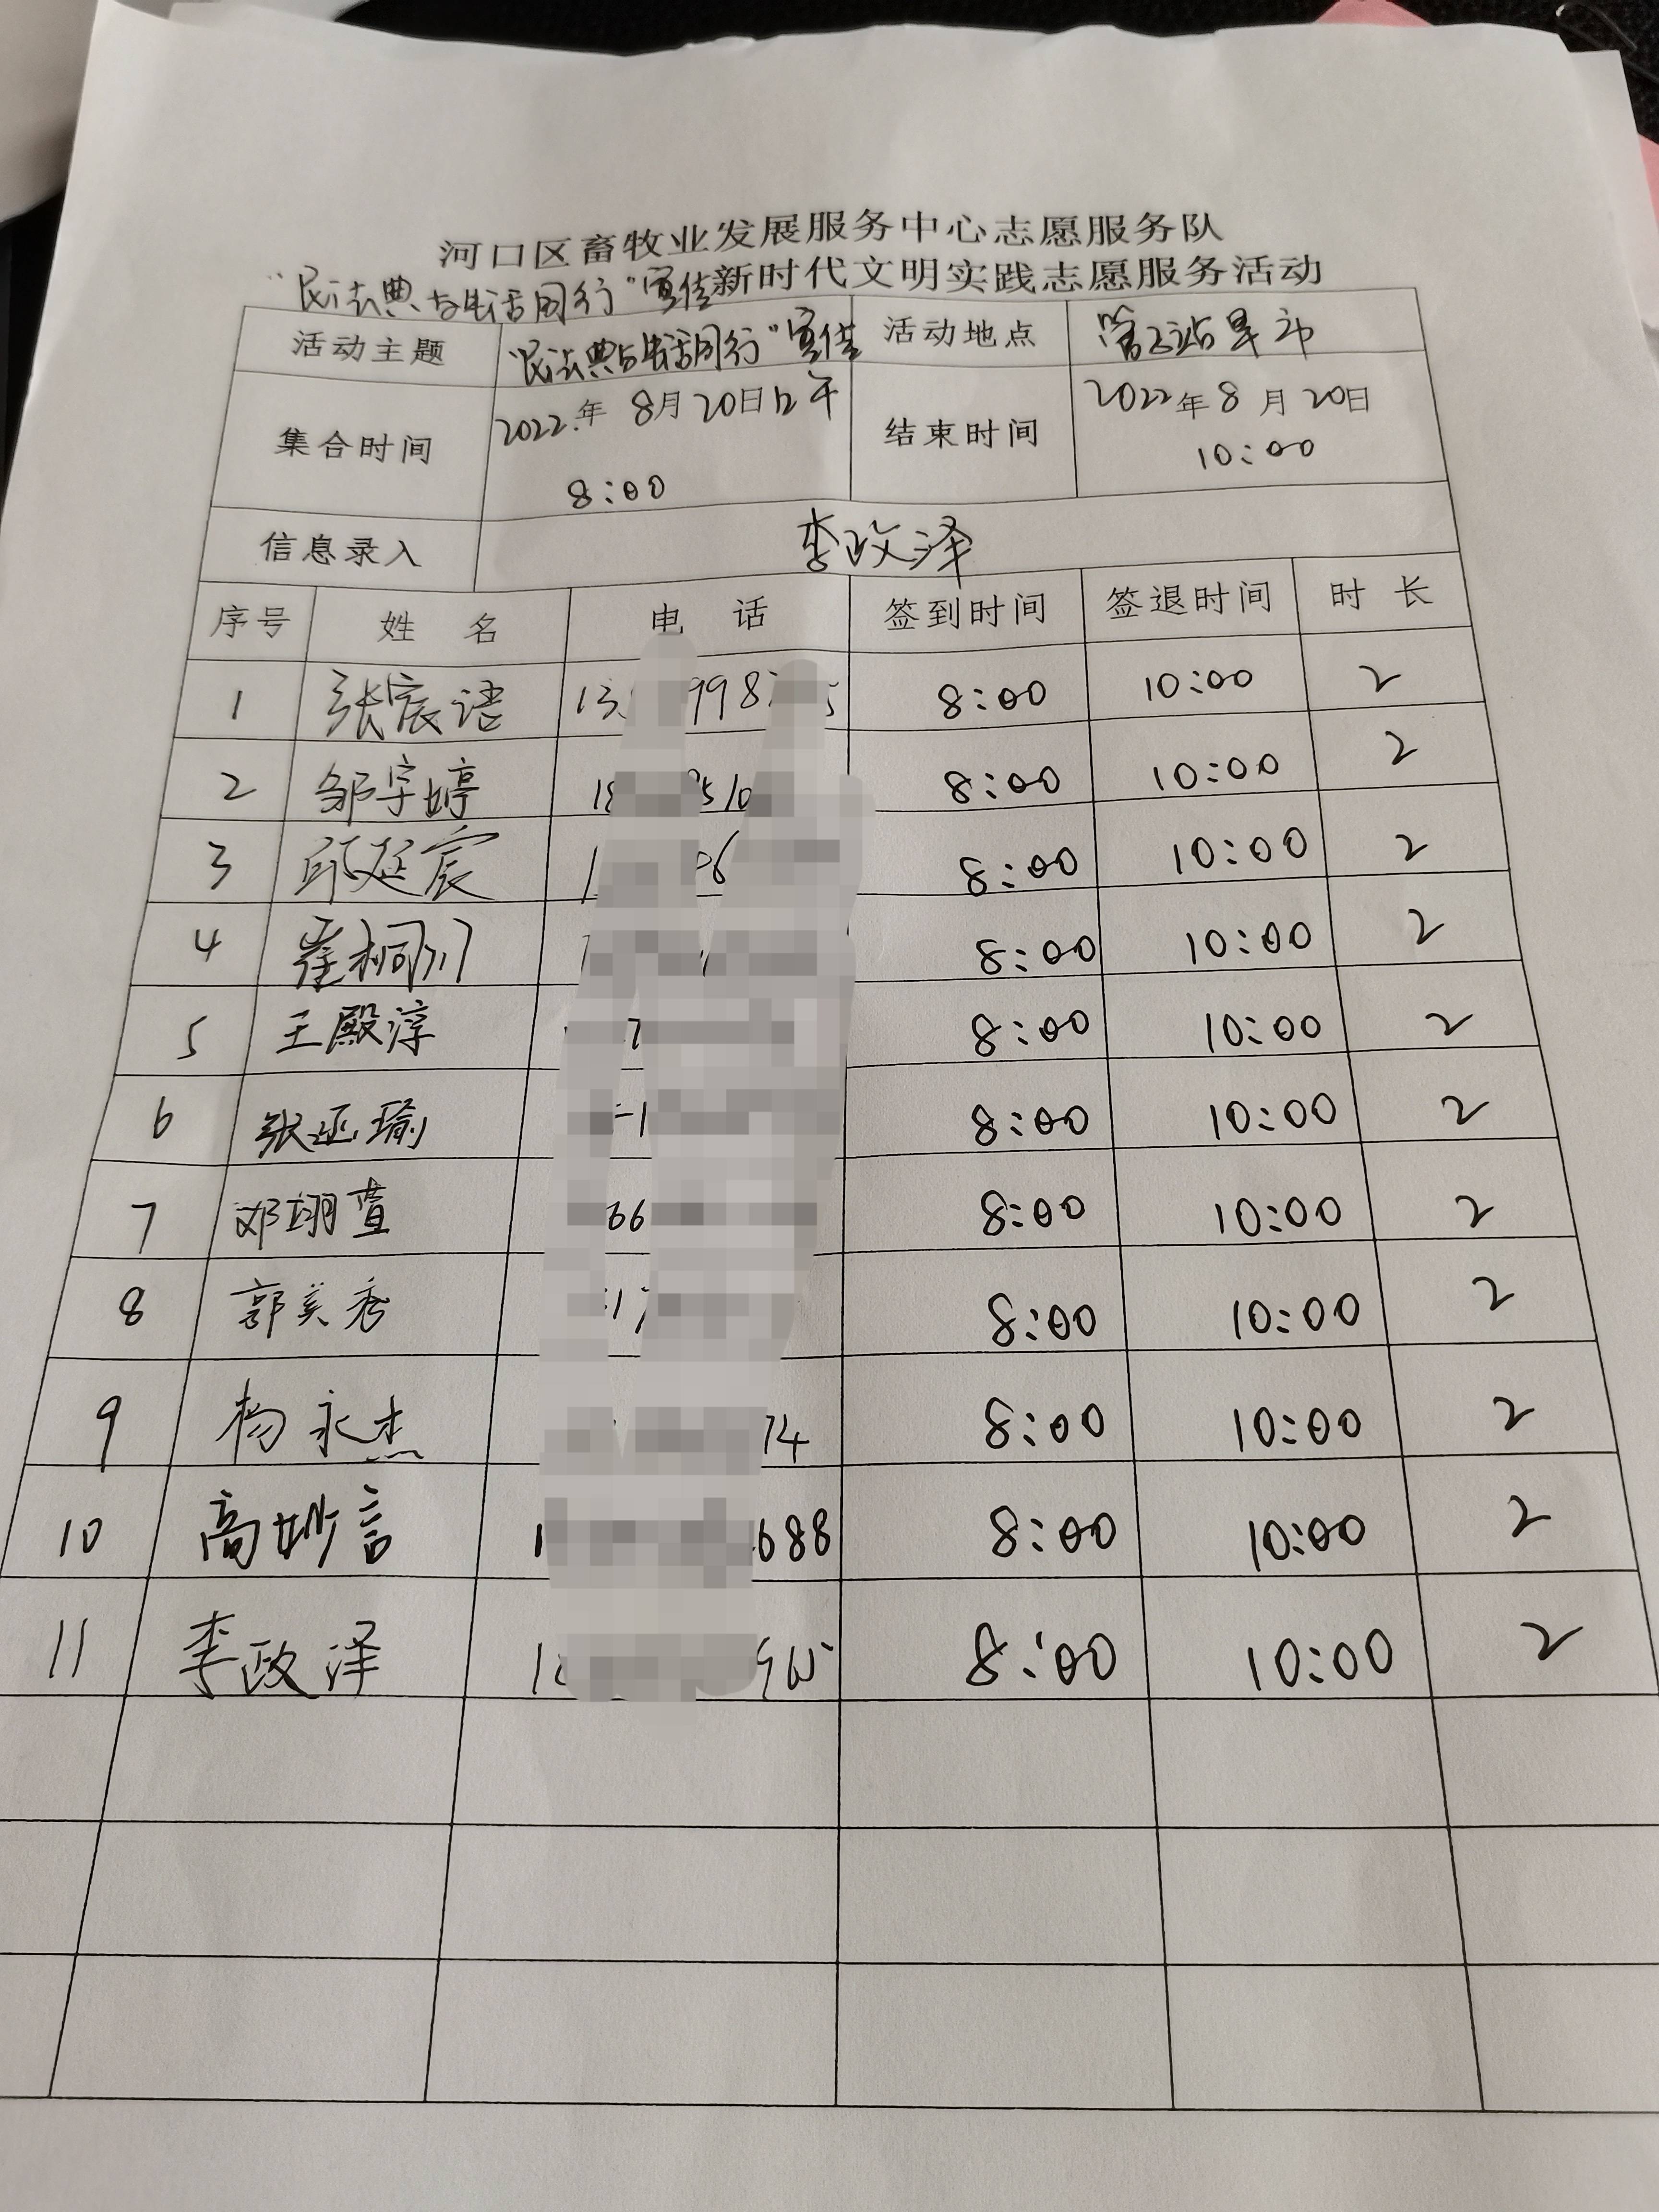 河口区畜牧业发展服务中心志愿服务队
"民法典与生活同行"宣传新时代文明实践志愿服务活动
活动主题 "民法典与生活同行"宣传 活动地点
集合时间 2022年 8月20日上午 8:00 结束时间 2022年8月20日 10:00
信息录入 李政泽
序号 姓 名 电 话 签到时间 签退时间 时 长
1 张宸语 8:00 10:00 2
2 邹宇婷 8:00 10:00 2
3 邱延宸 8:00 10:00 2
4 崔桐川 8:00 10:00 2
5 王殿淳 8:00 10:00 2
6 张函瑜 8:00 10:00 2
7 邓翊萱 8:00 10:00 2
8 郭美秀 8:00 10:00 2
9 杨永杰 8:00 10:00 2
10 高妙言 688 8:00 10:00 2
11 李政泽 8:00 10:00 2